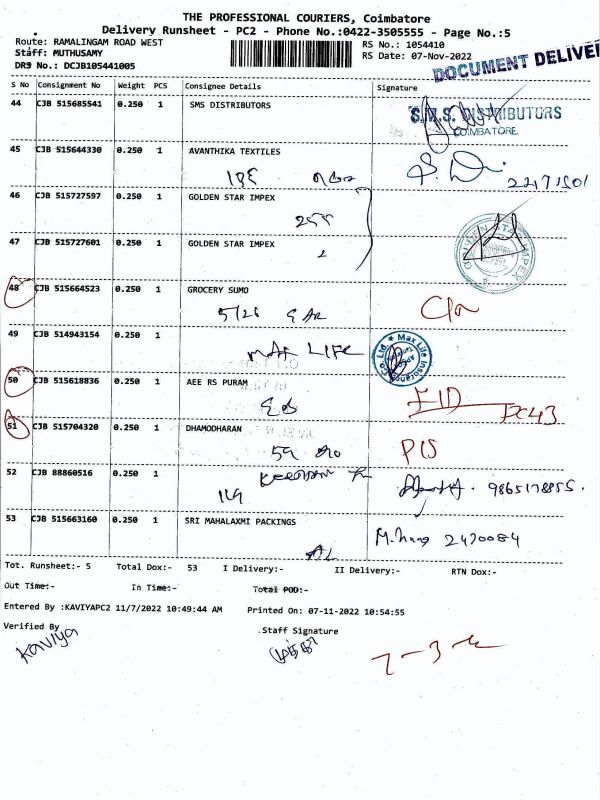 THE PROFESSIONAL COURIERS, Coimbatore
Delivery Runsheet - PC2 - Phone No.:0422-3505555 - Page No.:5
Route: RAMALINGAM ROAD WEST
RS No.: 1054410
Staff: MUTHUSAMY
RS Date: 07-Nov-2022
DRS No.: DCJB105441005
DOCUMENT DELIVE
S No Consignment No Weight PCS Consignee Details Signature
44 CJB 515685541 0.250 1 SMS DISTRIBUTORS
S.M.S. DISTRIBUTORS
COIMBATORE
45 CJB 515644330 0.250 1 AVANTHIKA TEXTILES
46 CJB 515727597 0.250 1 GOLDEN STAR IMPEX
47 CJB 515727601 0.250 1 GOLDEN STAR IMPEX
2
GOLDEN STAR IMPEX
48 CJB 515664523 0.250 1 GROCERY SUMO
5/26
49 CJB 514943154 0.250 1
MAX LIFE
Max Life Insurance Co. Ltd.
50 CJB 515618836 0.250 1 AEE RS PURAM
51 CJB 515704320 0.250 1 DHAMODHARAN
52 CJB 88860516 0.250 1
119
9865178855.
53 CJB 515663160 0.250 1 SRI MAHALAXMI PACKINGS
2470084
Tot. Runsheet:- 5 Total Dox:- 53 I Delivery:- II Delivery:- RTN Dox:-
Out Time:- In Time:- Total POD:-
Entered By :KAVIYAPC2 11/7/2022 10:49:44 AM Printed On: 07-11-2022 10:54:55
Verified By .Staff Signature
Kaviya